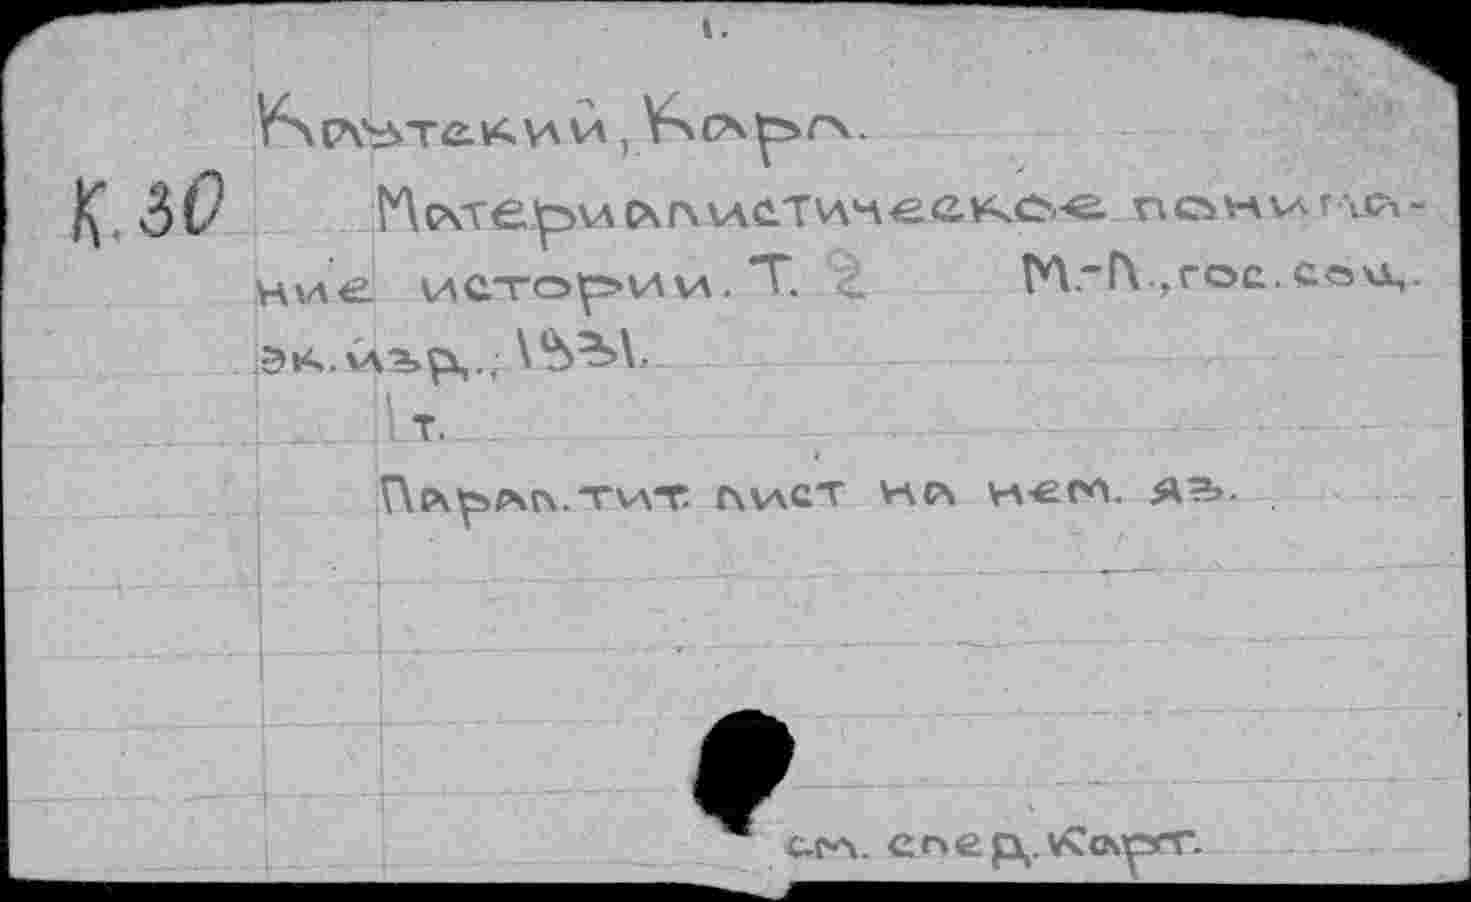 1.
Каутский, Карл.
К.30
Материалистическое понима-
ние истории. Т. 2 М.-Л., гос. соц.
эк. изд., 1931.
т.
Парал. тит. лист на нем. яз.
см. след. карт.